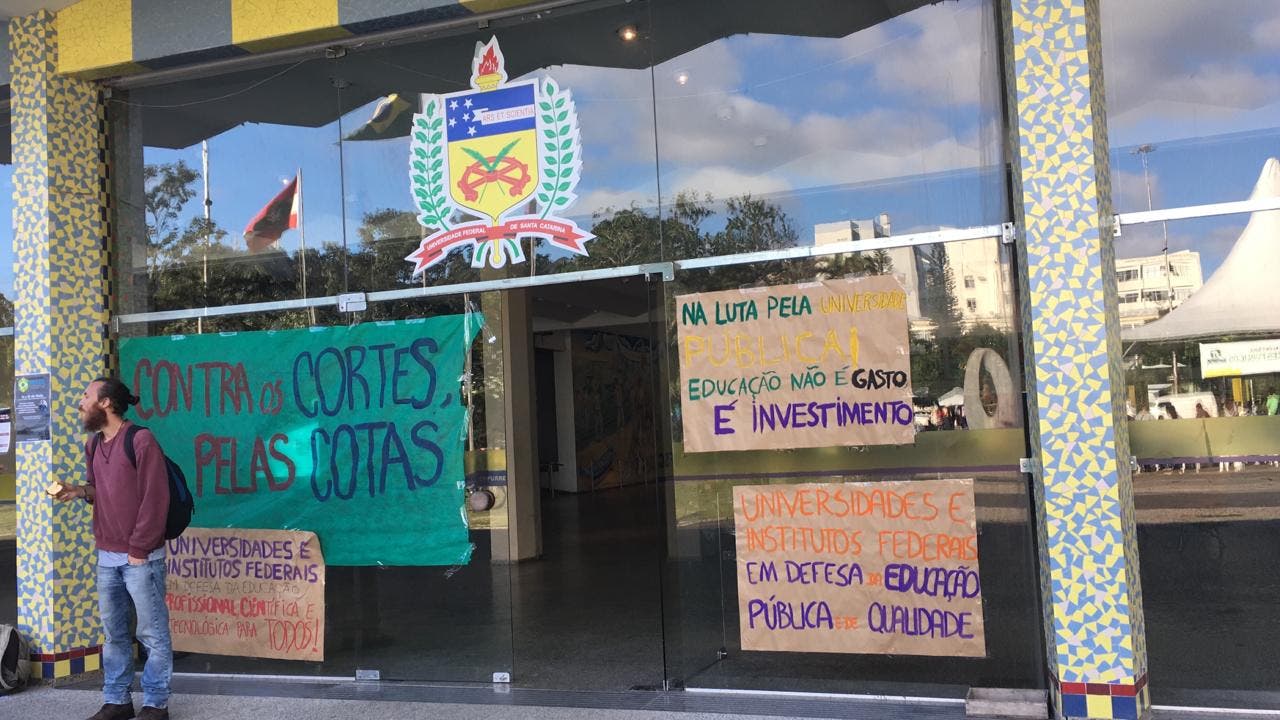 ARS ET SCIENTIA
UNIVERSIDADE FEDERAL DE SANTA CATARINA
CONTRA OS CORTES,
PELAS COTAS
UNIVERSIDADES E
INSTITUTOS FEDERAIS
EM DEFESA DA EDUCAÇÃO
PROFISSIONAL CIENTÍFICA E
TECNOLÓGICA PARA TODOS!
NA LUTA PELA UNIVERSIDADE
PÚBLICA!
EDUCAÇÃO NÃO É GASTO
É INVESTIMENTO
UNIVERSIDADES E
INSTITUTOS FEDERAIS
EM DEFESA DA EDUCAÇÃO
PÚBLICA E DE QUALIDADE
PURRE